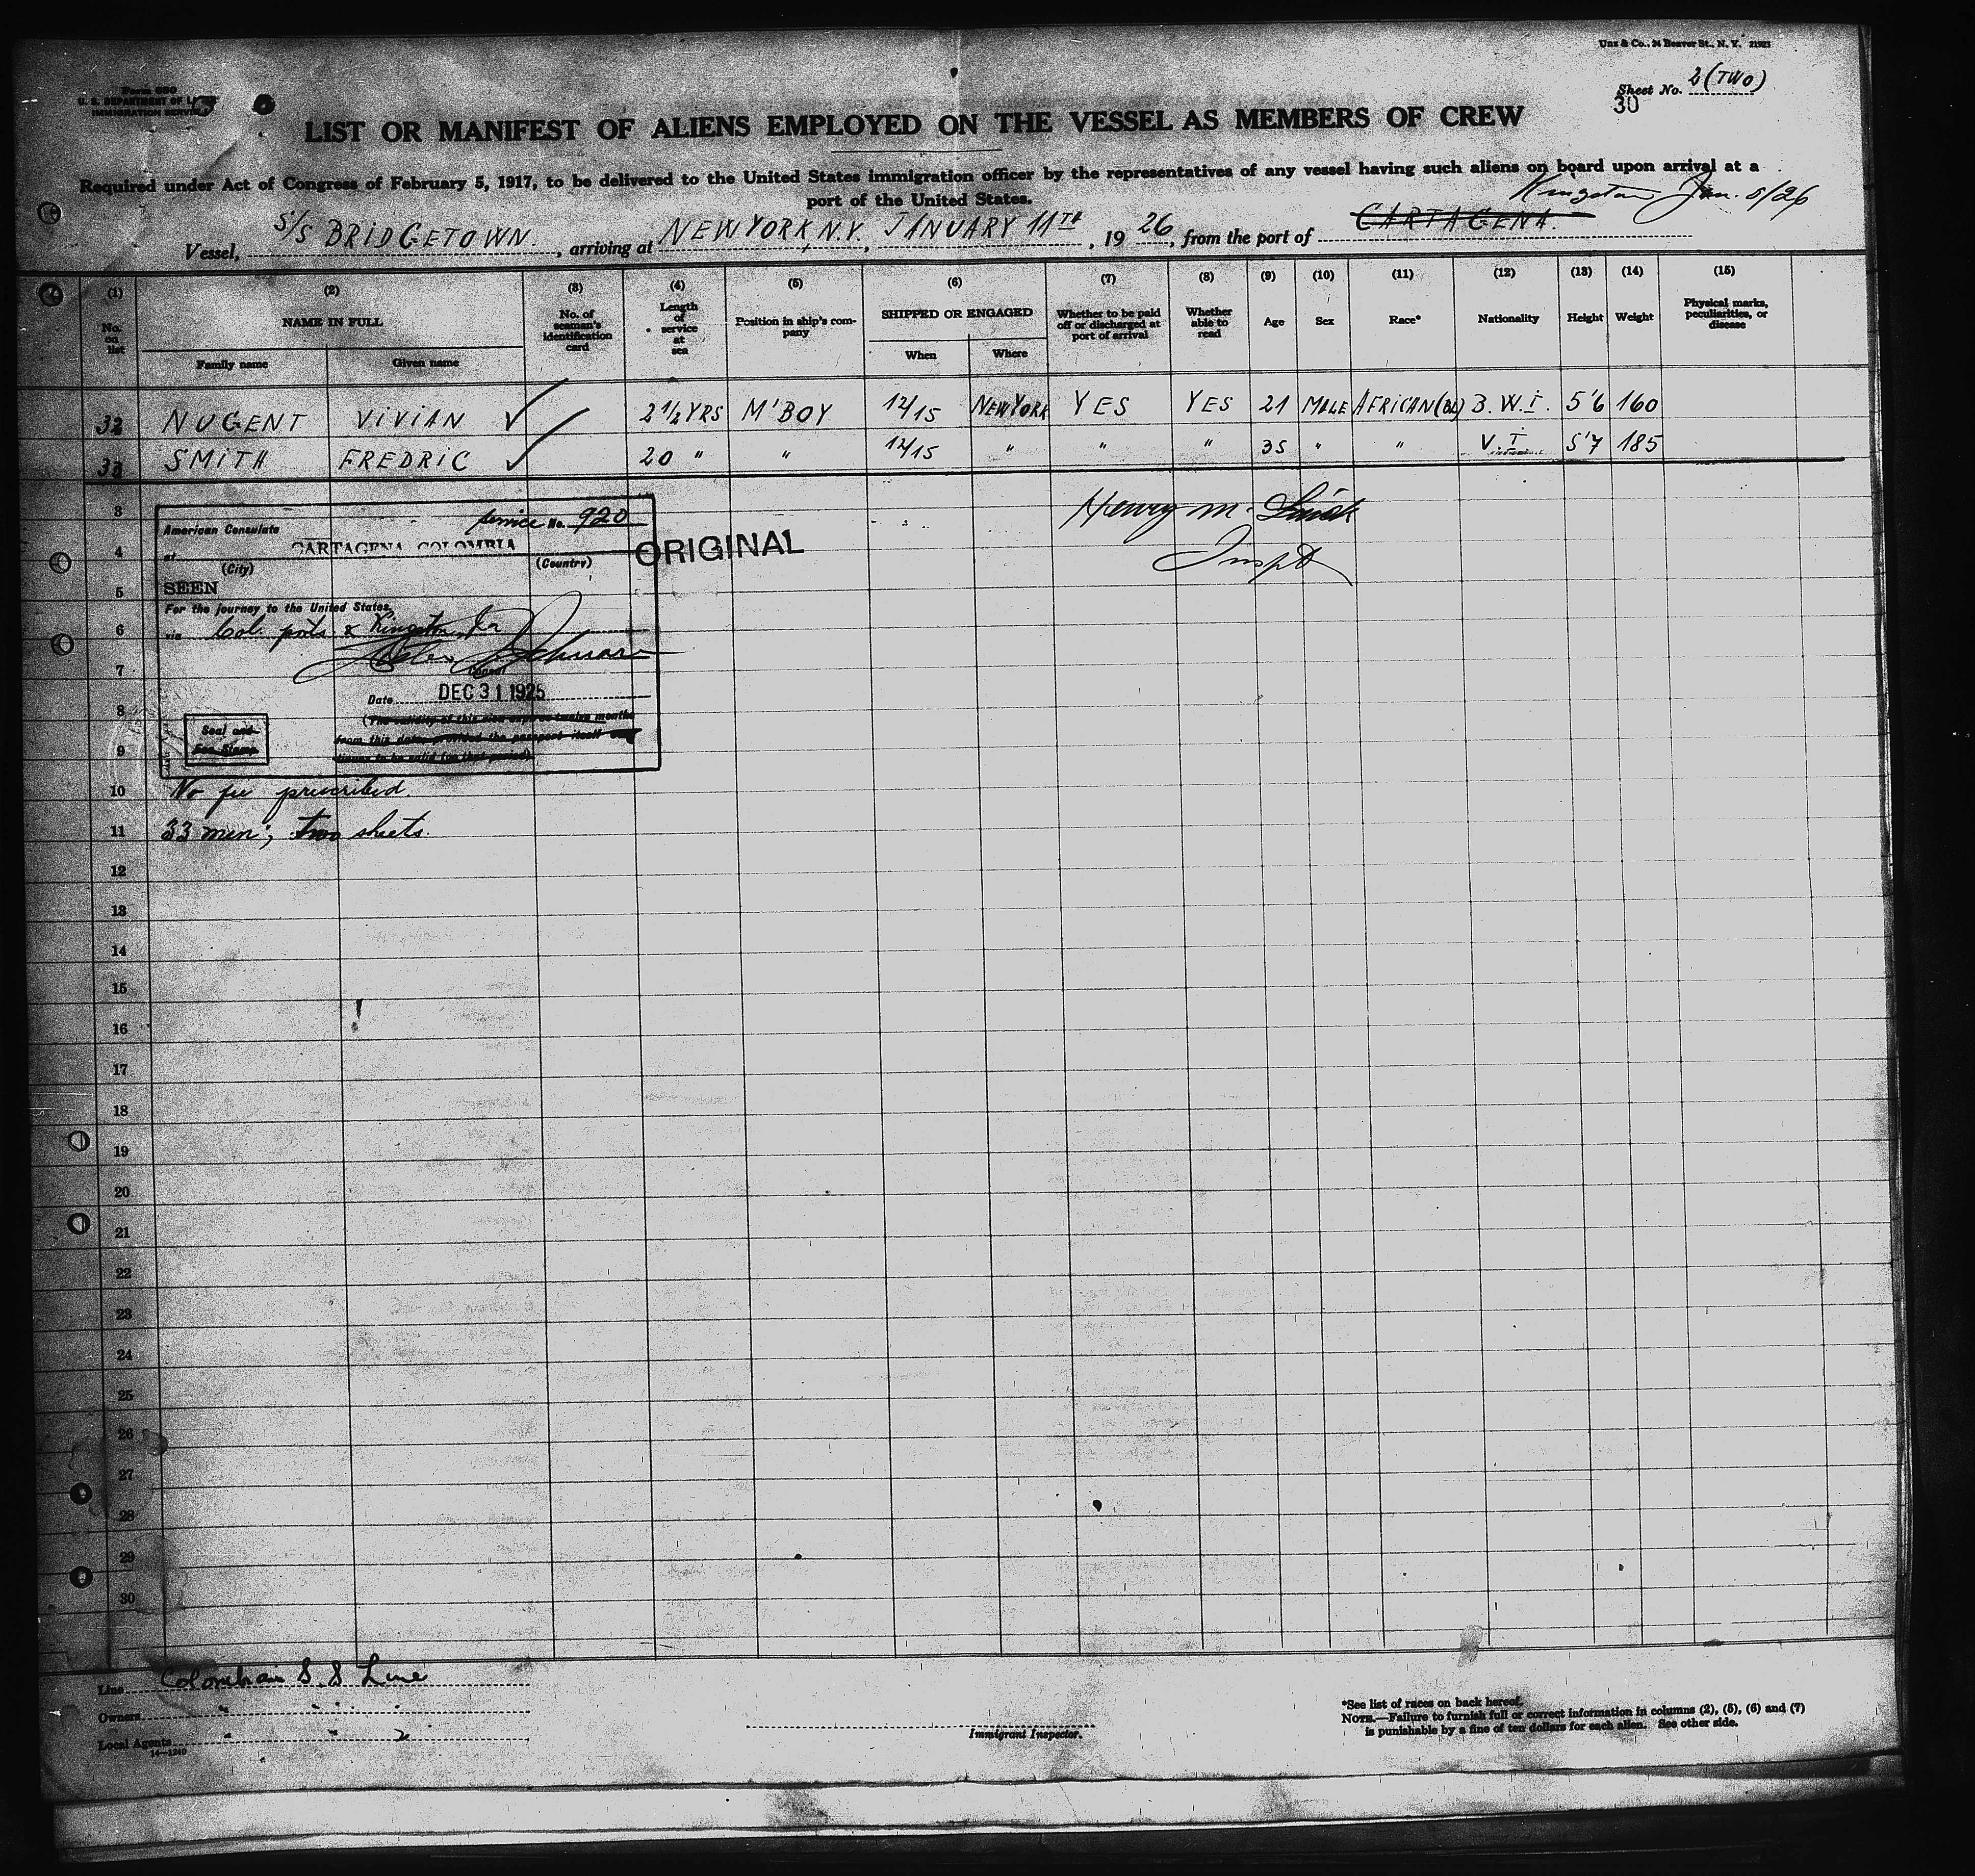 Unz & Co., 24 Beaver St., N. Y. 21923
Form 680
U. S. DEPARTMENT OF
IMMIGRATION SERVICE
Sheet No. 2 (TWO)
30
LIST OR MANIFEST OF ALIENS EMPLOYED ON THE VESSEL AS MEMBERS OF CREW
Required under Act of Congress of February 5, 1917, to be delivered to the United States immigration officer by the representatives of any vessel having such aliens on board upon arrival at a
port of the United States.
Kingston Jan. 5/26
Vessel, S/S BRIDGETOWN, arriving at NEW YORK, N.Y., JANUARY 11TH, 1926, from the port of CARTAGENA.
(1) (2) (3) (4) (5) (6) (7) (8) (9) (10) (11) (12) (13) (14) (15)
No. on list NAME IN FULL No. of seaman's identification card Length of service at sea Position in ship's company SHIPPED OR ENGAGED Whether to be paid off or discharged at port of arrival Whether able to read Age Sex Race* Nationality Height Weight Physical marks, peculiarities, or disease
Family name Given name When Where
32 NUGENT VIVIAN ✓ 2 1/2 YRS M'BOY 12/15 NEW YORK YES YES 21 MALE AFRICAN (BL) B.W.I. 5'6 160
33 SMITH FREDRIC ✓ 20 " " 12/15 " " " 35 " " V.I. 5'7 185
3
4
5
6
7
8
9
10
11
12
13
14
15
16
17
18
19
20
21
22
23
24
25
26
27
28
29
30
American Consulate Service No. 920
at CARTAGENA COLOMBIA
(City) (Country)
SEEN
For the journey to the United States,
via Col. ports & Kingston Ja
Consul
Date DEC 31 1925
(The validity of this visa expires twelve months
from this date provided the passport itself
tinues to be valid for that period)
Seal and
Fee Stamp
ORIGINAL
Henry M.
Inspt
No fee prescribed.
33 men; two sheets.
Line Colombian S.S Line
Owners " " "
Local Agents " " "
14-1240
Immigrant Inspector.
*See list of races on back hereof.
NOTE.—Failure to furnish full or correct information in columns (2), (5), (6) and (7)
is punishable by a fine of ten dollars for each alien. See other side.